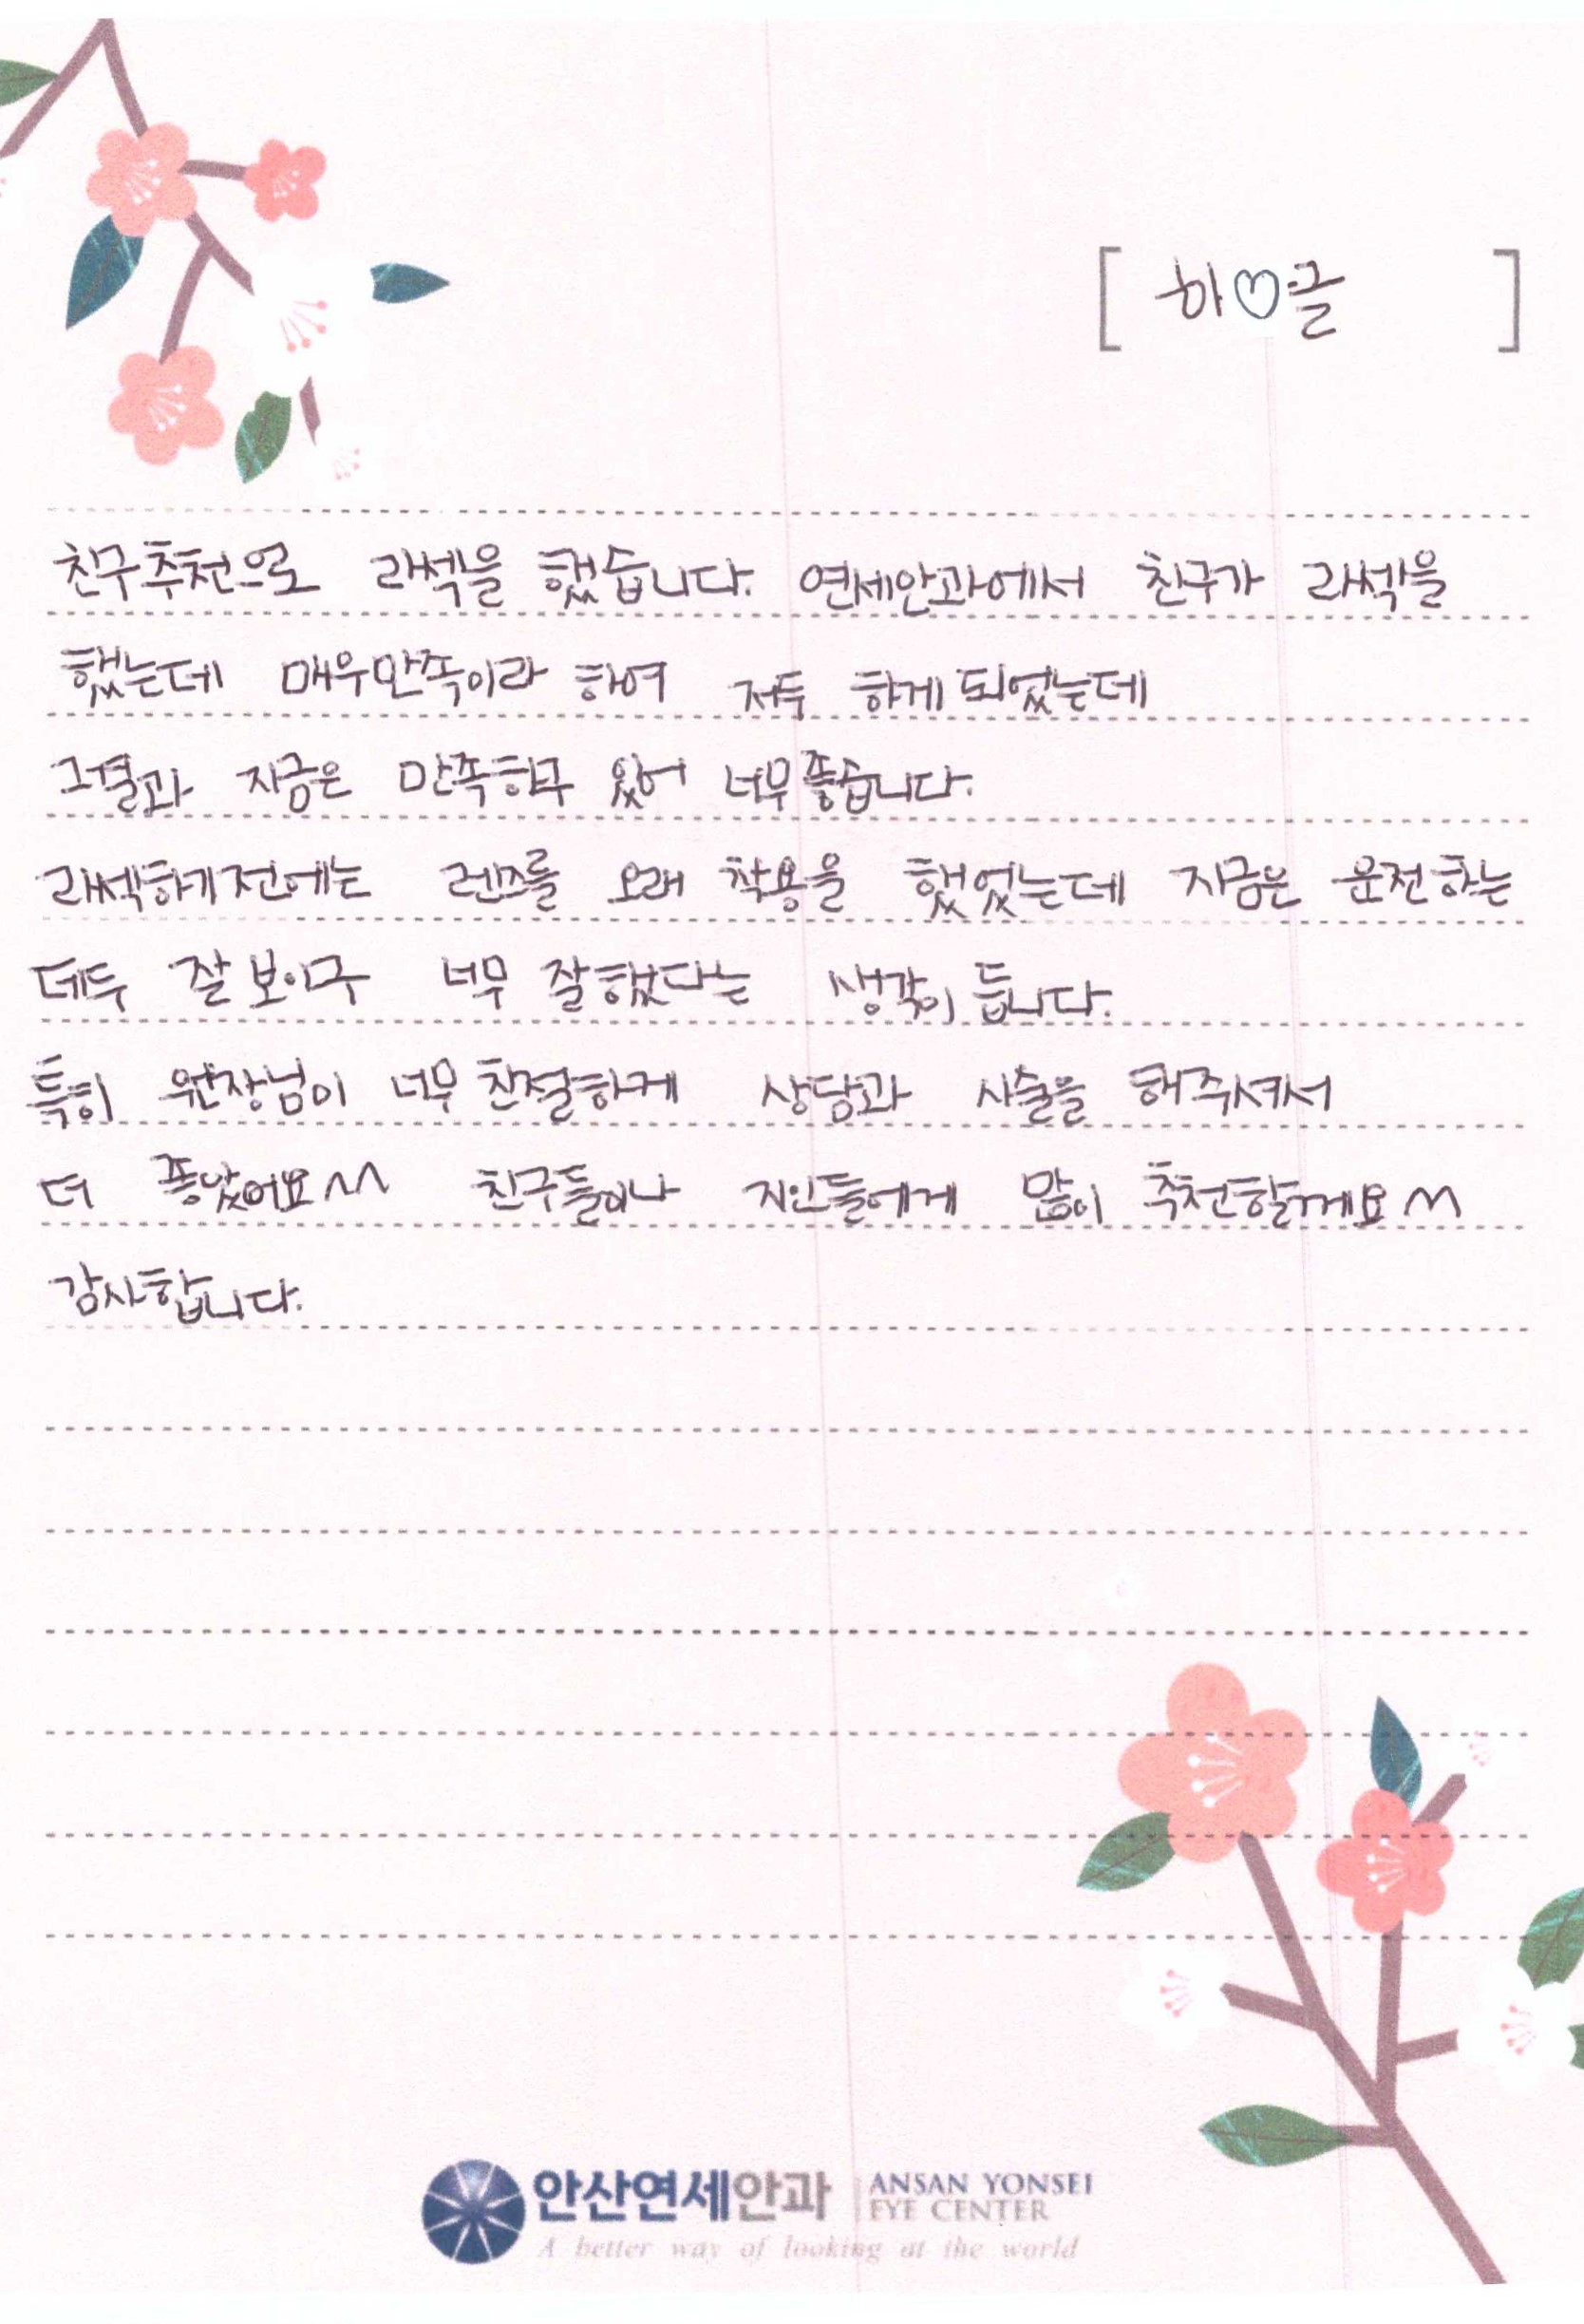 [ 하♡글 ]
친구추천으로 라섹을 했습니다. 연세안과에서 친구가 라섹을
했는데 매우만족이라 하여 저두 하게 되었는데
그결과 지금은 만족하구 있어 너무좋습니다.
라섹하기전에는 렌즈를 오래 착용을 했었는데 지금은 운전하는
데두 잘 보이구 너무 잘했다는 생각이 듭니다.
특히 원장님이 너무 친절하게 상담과 시술을 해주셔서
더 좋았어요^^ 친구들이나 지인들에게 많이 추천할께요^^
감사합니다.
안산연세안과 ANSAN YONSEI
EYE CENTER
A better way of looking at the world